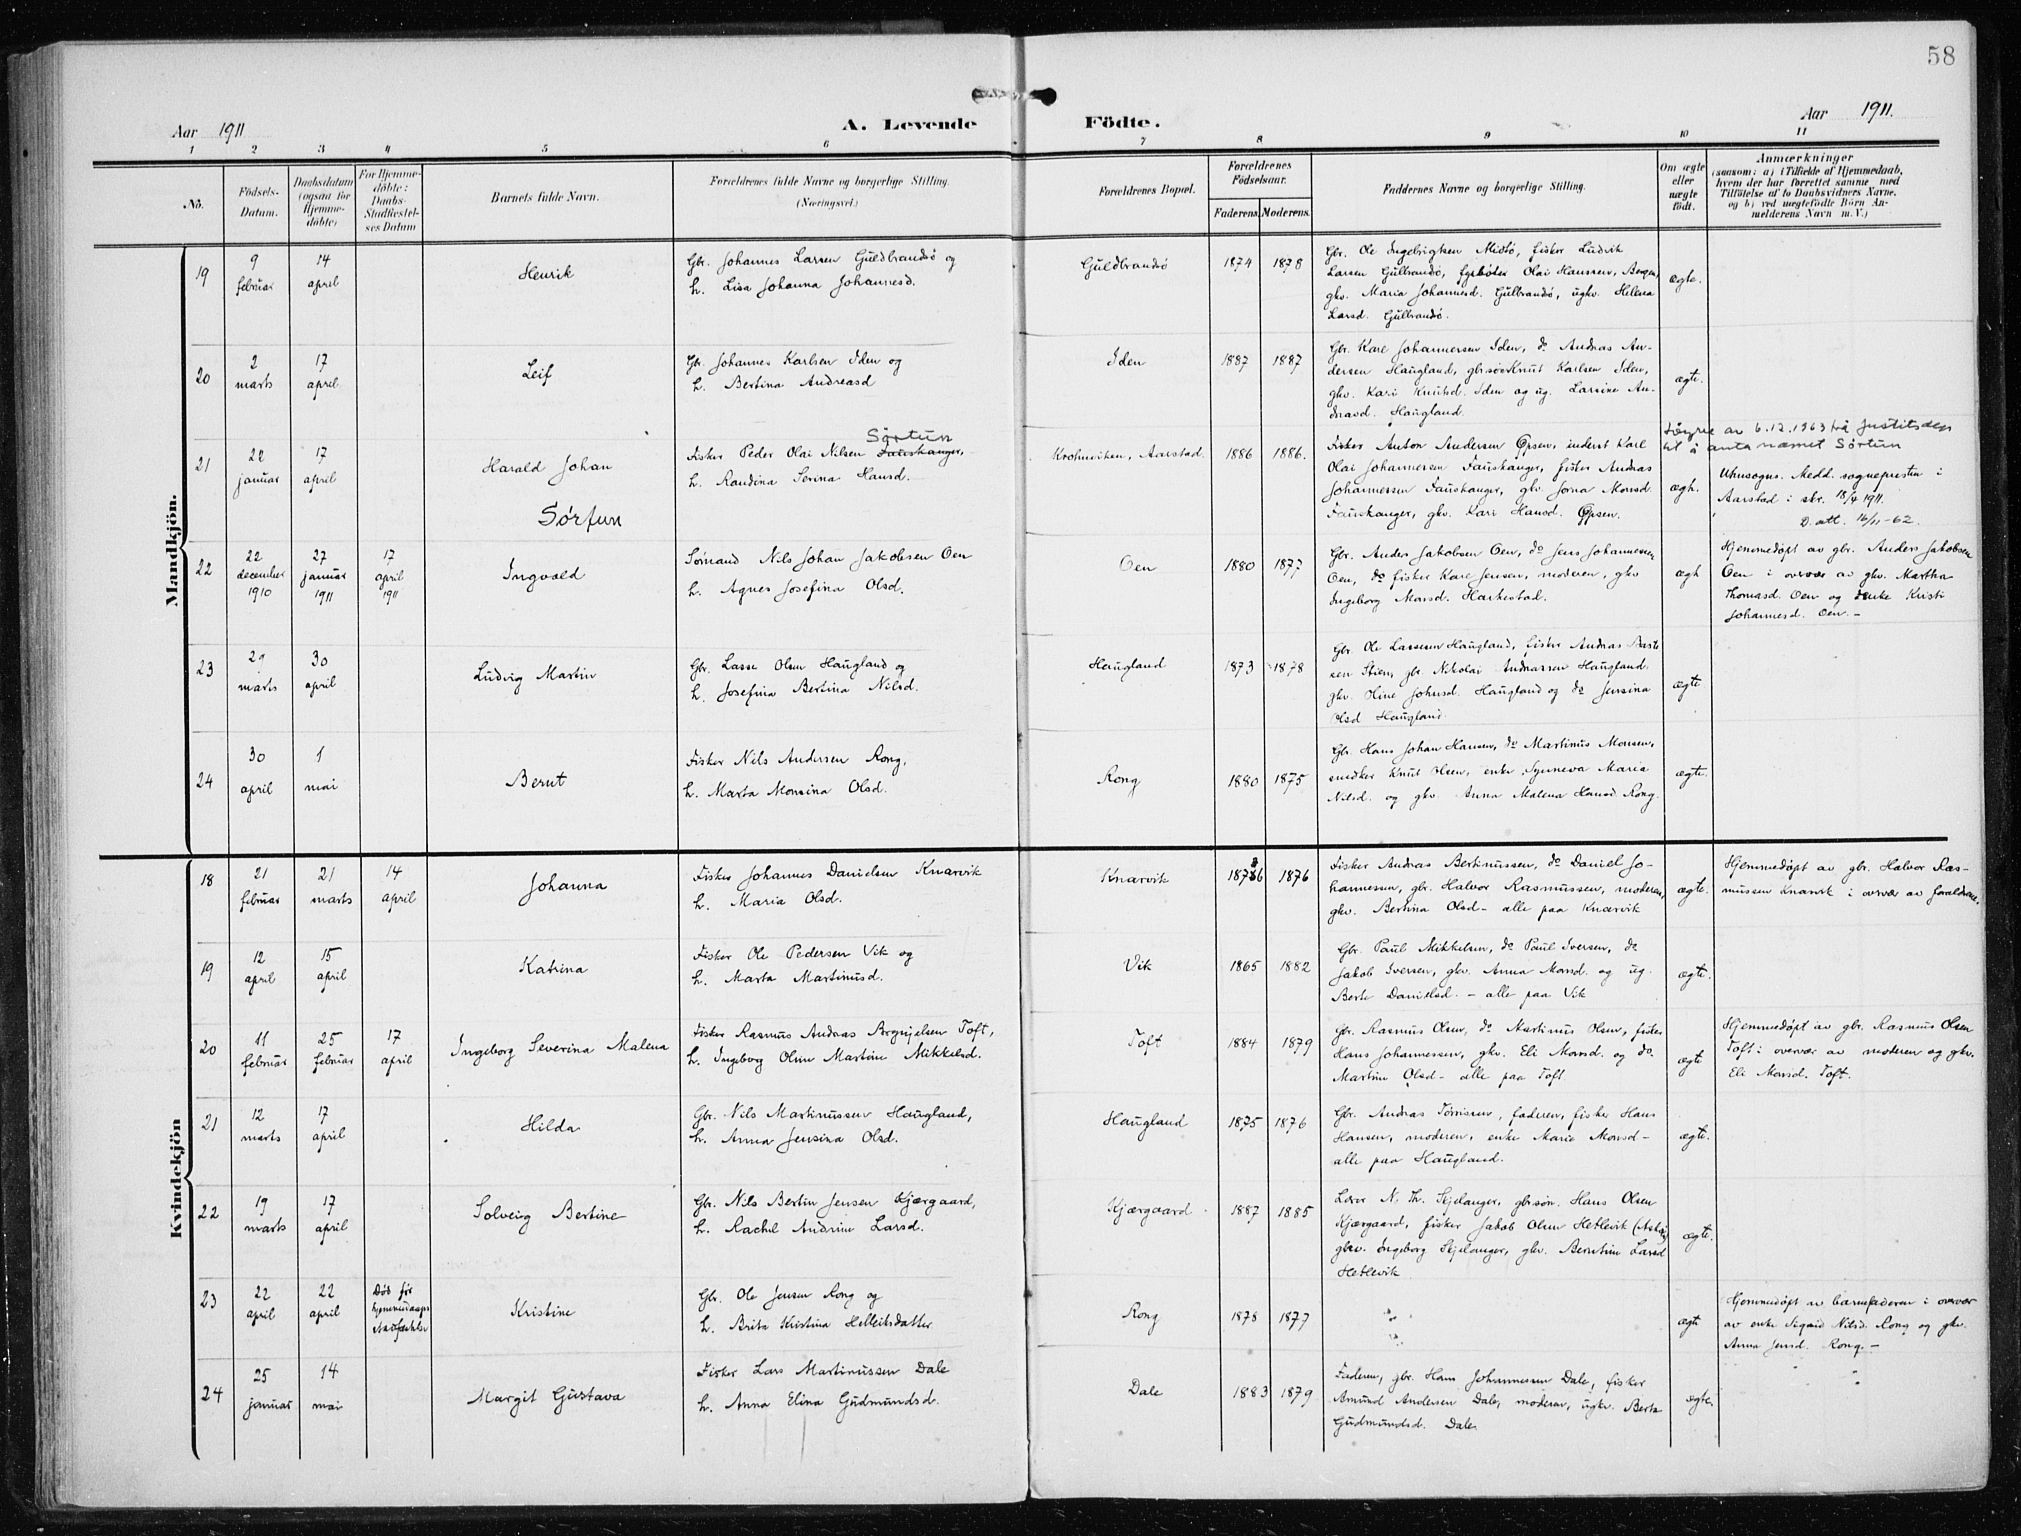 58
Aar 1911
A. Levende Födte.
Aar 1911.
1 2 3 4 5 6 7 8 9 10 11
No.
Födsels-Datum.
Daabsdatum (ogsaa for Hjemme-döbte)
For Hjemme-döbte: Daabs-Stadfæstel-ses Datum
Barnets fulde Navn.
Forældrenes fulde Navne og borgerlige Stilling.
(Næringsvei.)
Forældrenes Bopæl.
Forældrenes Födselsaar.
Faderens. Moderens.
Faddernes Navne og borgerlige Stilling.
Om ægte eller uægte födt.
Anmærkninger
(saasom: a) i Tilfælde af Hjemmedaab,
hvem der har forrettet samme med
Tilföielse af to Daabsvidners Navne,
og b) ved uægtefödte Börn An-
melderens Navn m. V.)
Mandkjön.
19
9 februar
14 april
Henrik
Gbr. Johannes Larsen Guldbrandsø og
h. Lisa Johanna Johannesd.
Guldbrandsø
1874 1878
Gbr. Ole Ingebrigtsen Midtø, fisker Ludvik
Larsen Gulbrandsø, fyrbøter Olai Hanssen, Bergen,
gkv. Maria Johannesd. Gulbrandsø, ugkv. Helena
Larsd. Gulbrandsø.
ægte.
20
2 marts
17 april
Leif
Gbr. Johannes Karlsen Iden og
h. Bertina Andreasd
Iden
1887 1887
Gbr. Karl Johannersen Iden, do Andras An-
dersen Haugland, gbrsøn Knut Karlsen Iden,
gkv. Kari Knutsd. Iden og ug. Larsine An-
drasd. Haugland.
ægte.
21
22 januar
17 april
Harald Johan
Sørtun
Sørtun
Fisker Peder Olai Nilsen Fauskanger,
h. Randina Serina Hansd.
Krohnviken, Aarstad.
1886 1886.
Fisker Anton Andersen Øpsen, inderst Karl
Olai Johannersen Fauskanger, fisker Andras
Johannessen Fauskanger, gkv. Jorna Monsd.
Fauskanger, gkv. Kari Hansd. Øpsen.
ægt.
av 6.12.1963 frå Justitsdep
til å anta namet Sørtun
Utensogns. Medd. sognepresten i
Aarstad i skr. 18/4 1911.
D. att. 16/11-62.
22
22 december 1910
27 januar 1911
17 april 1911
Ingvald
Sømand Nils Johan Jakobsen Oen
h. Agnes Josefina Olsd.
Oen
1880 1877
Gbr. Anders Jakobsen Oen, do Jens Johannessen
Oen, do fisker Karl Jensen, moderen, gkv
Ingeborg Monsd. Harkestad.
ægt
Hjemmedøpt av gbr. Anders Jakobsen
Oen i overvær av gkv. Martha
Thomasd. Oen og enke Kristi
Johannesd. Oen.-
23
29 marts
30 april
Ludvig Martin
Gbr. Lasse Olsen Haugland og
h. Josefina Bertina Nilsd.
Haugland
1873 1878
Gbr. Ole Lassesen Haugland, fisker Andras Baste
sen Stien, gbr Nikolai Andrassen Haugland
gkv. Oline Johnsd. Haugland og do Jensina
Olsd Haugland
ægte
24
30 april
1 mai
Bernt
Fisker Nils Andersen Rong,
h. Marta Monsina Olsd.
Rong
1880 1875
Gbr. Hans Johan Hansen, do Martinus Monsen,
snedker Knut Olsen, enke Synneva Maria
Nilsd. og gkv. Anna Malena Hansd. Rong.
ægte.
Kvindekjön
18
21 februar
21 marts
14 april
Johanna
Fisker Johannes Danielsen Knarvik
h. Maria Olsd.
Knarvik
1876 1876
Fisker Andras Bertinussen, do Daniel Jo-
hannessen, gbr. Halvor Rasmussen, moderen,
gkv. Bertina Olsd - alle paa Knarvik
ægte.
Hjemmedøpt av gbr. Halvor Ras-
mussen Knarvik i overvær av forældrene.
19
12 april
15 april
Katrina
Fisker Ole Pedersen Vik og
h. Marta Martinusd.
Vik
1865 1882
Gbr. Paul Mikkelsen, do Paul Iversen, do
Jakob Iversen, gkv. Anna Monsd. og ug.
Berte Danielsd. - alle paa Vik
ægte.
20
11 februar
25 februar
17 april
Ingeborg Severina Malena
Fisker Rasmus Andras Brynjelsen Toft,
h. Ingeborg Oline Martine Mikkelsd.
Toft
1884 1879
Gbr. Rasmus Olsen, do Martinus Olsen, fisker
Hans Johannessen, gkv. Eli Monsd. og do.
Martine Olsd - alle paa Toft
ægte
Hjemmedøpt av gbr. Rasmus Olsen
Toft i overvær av moderen og gkv.
Eli Monsd. Toft.
21
12 marts
17 april
Hilda
Gbr. Nils Martinussen Haugland,
h. Anna Jensina Olsd.
Haugland
1875 1876
Gbr. Andras Tønnsen, faderen, fisker Hans
Hansen, moderen, enke Marie Monsd-
alle paa Haugland.
ægte.
22
19 marts
17 april
Solveig Bertine
Gbr. Nils Bertin Jensen Kjærgaard,
h. Rachel Andrine Larsd.
Kjærgaard
1887 1885
Lærer N. Th. Skjelanger, gbrsøn. Hans Olsen
Kjærgaard, fisker Jakob Olsen Hetlevik (Askøy)
gkv. Ingeborg Skjelanger, gkv. Berntine Larsd
Hetlevik
ægte.
23
22 april
22 april
Død før hjemmedaaps stadfæstelse
Kristine
Gbr. Ole Jensen Rong og
h. Brita Kristina Helleitsdatter
Rong
1878 1877
ægte
Hjemmedøpt av barnefaderen i overvær
av enke Sigrid Nilsd. Rong og gkv.
Anna Jensd. Rong.-
24
25 januar
14 mai
Margit Gustava
Fisker Lars Martinussen Dale
h. Anna Elina Gudmundsd.
Dale
1883 1879
Faderen, gbr. Hans Johannessen Dale, fisker
Amund Andersen Dale, moderen, ugkv. Berta
Gudmundsd. Dale
ægte.